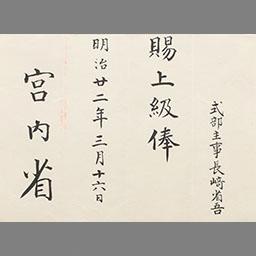 式部主事長崎省吾
賜上級俸
明治廿二年三月十六日
宮内省